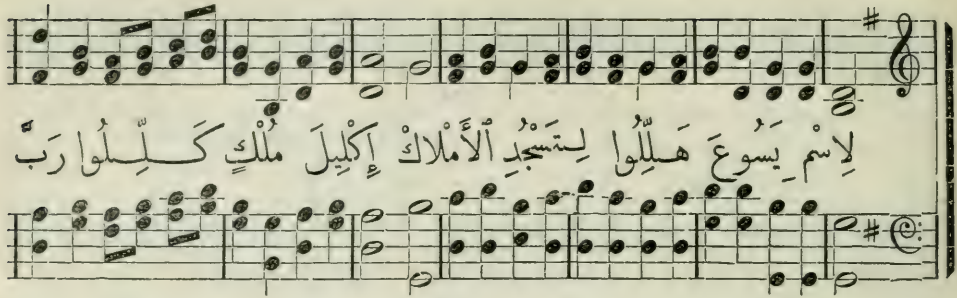 لِاسْمِ يَسُوعَ هَلِّلُوا لِتَسْجُدِ ٱلأَمْلاكْ إِكْلِيلَ مُلْكٍ كَلِّلُوا رَبَّ